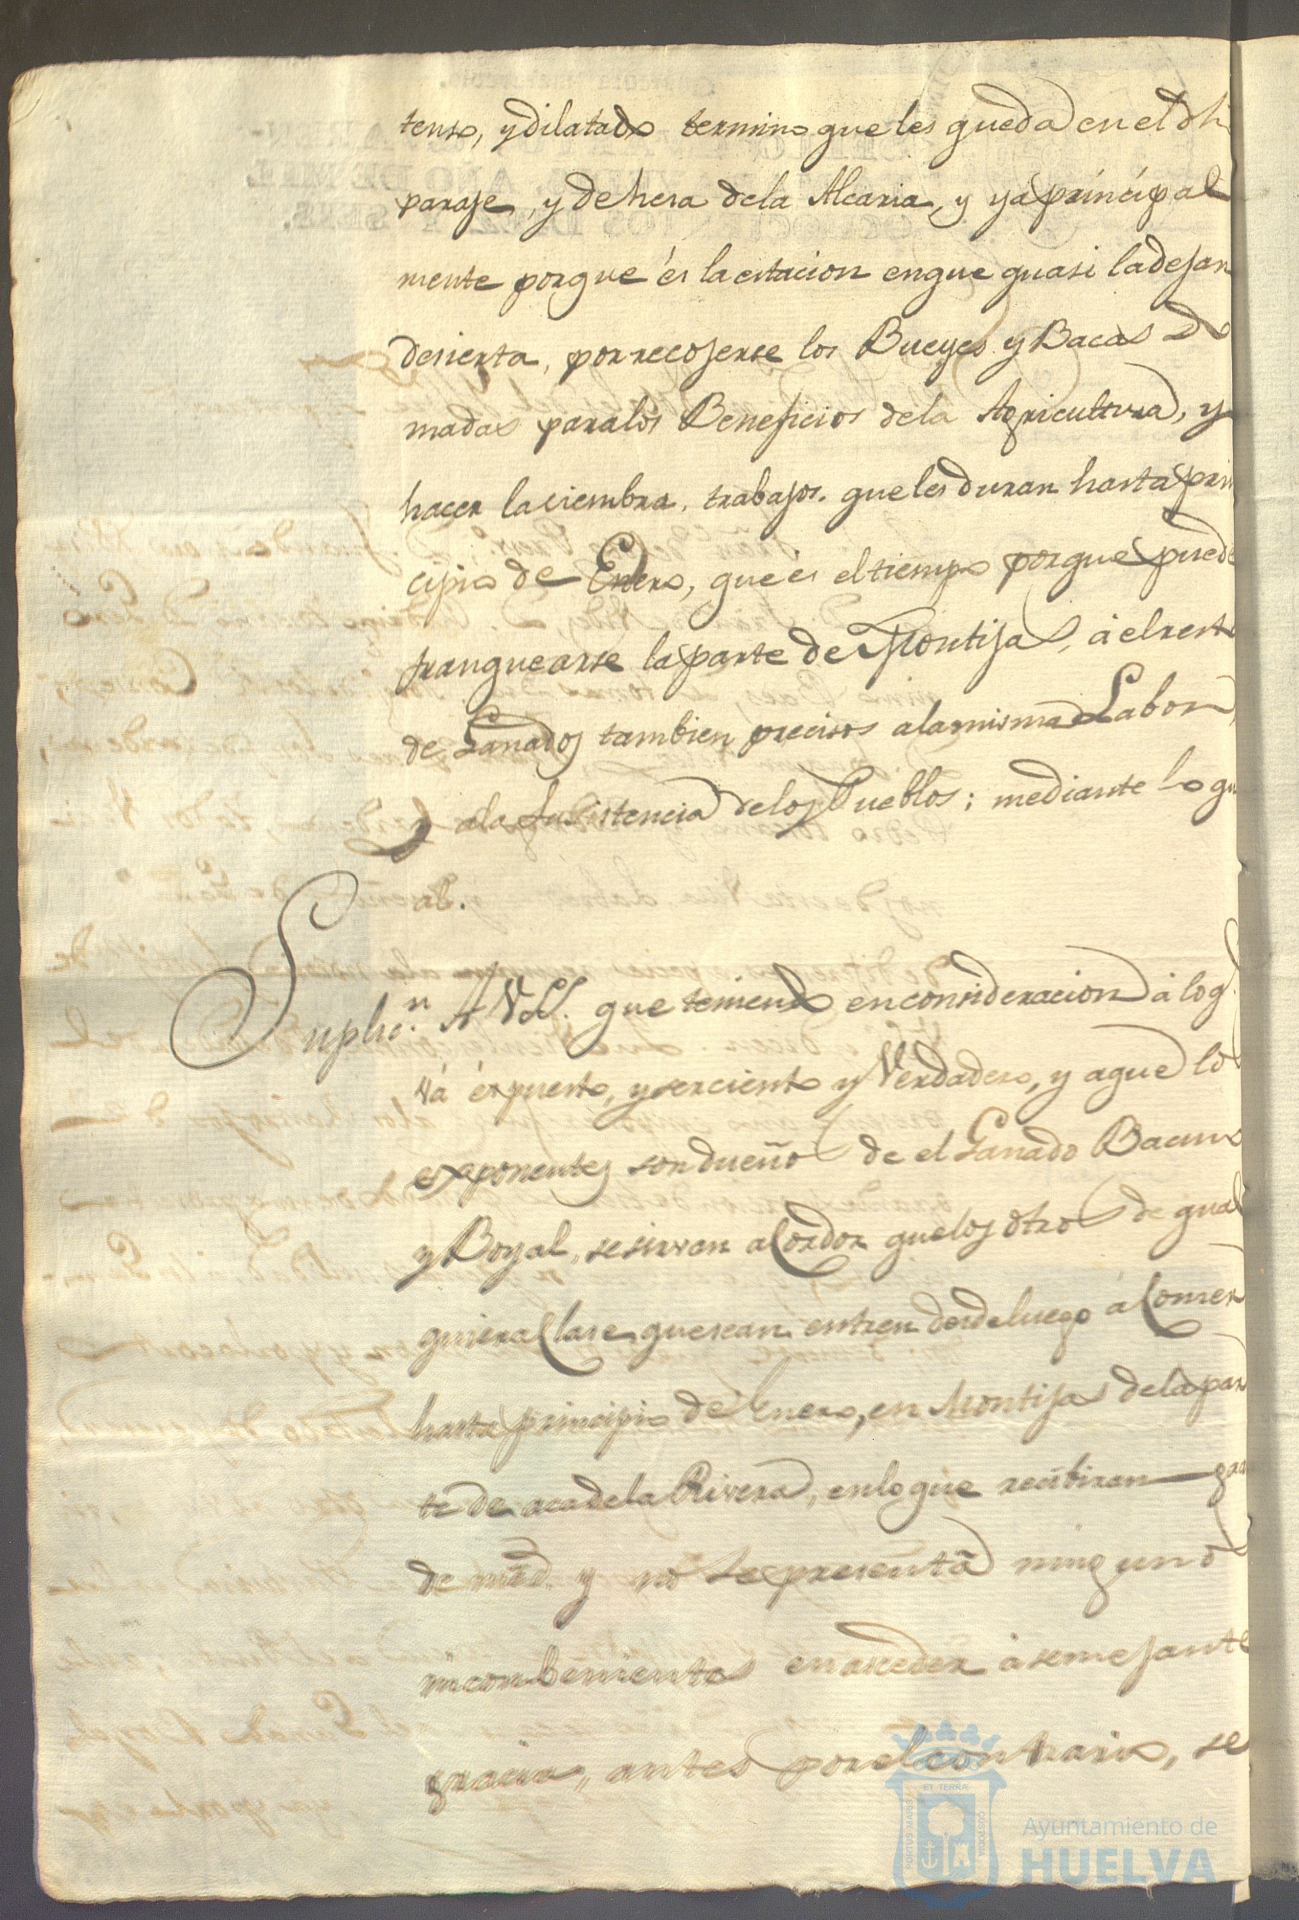 tenso, y dilatado termino que les queda en el dh
paraje, y dehesa dela Alcaria, y yá principal
mente porque és la estacion en que quasi la dejan
desierta, por recojerse los Bueyes y Bacas Do
madas para los Beneficios dela Agricultura, y
hacer la siembra, trabajos. que les duran hasta prin
cipio de Enero, que és el tiempo porque puede
franquearse la parte de Montijas, á el resto
de Ganados tambien precisos a la misma Labor,
y a la Subsistencia de los Pueblos; mediante lo qu
al.
Suplic.n A VSS. que teniendo en consideracion á lo q.
vá éxpuesto, y ser ciento y Verdadero, y a que lo
exponentes son dueño de el Ganado Bacuno
y Boyal, se sirvan aCordar que los ótro de qual
quiera Clase que sean entren desde luego á Comer
hasta principio de Enero, en Montijas de la par
te de aca dela Rivera, en lo que recibiran gra
de mrd. y no se presenta ninguno
incombeniente en acceder á semejante
gracia, antes por el contrario, se
ET TERRÆ
Ayuntamiento de
HUELVA